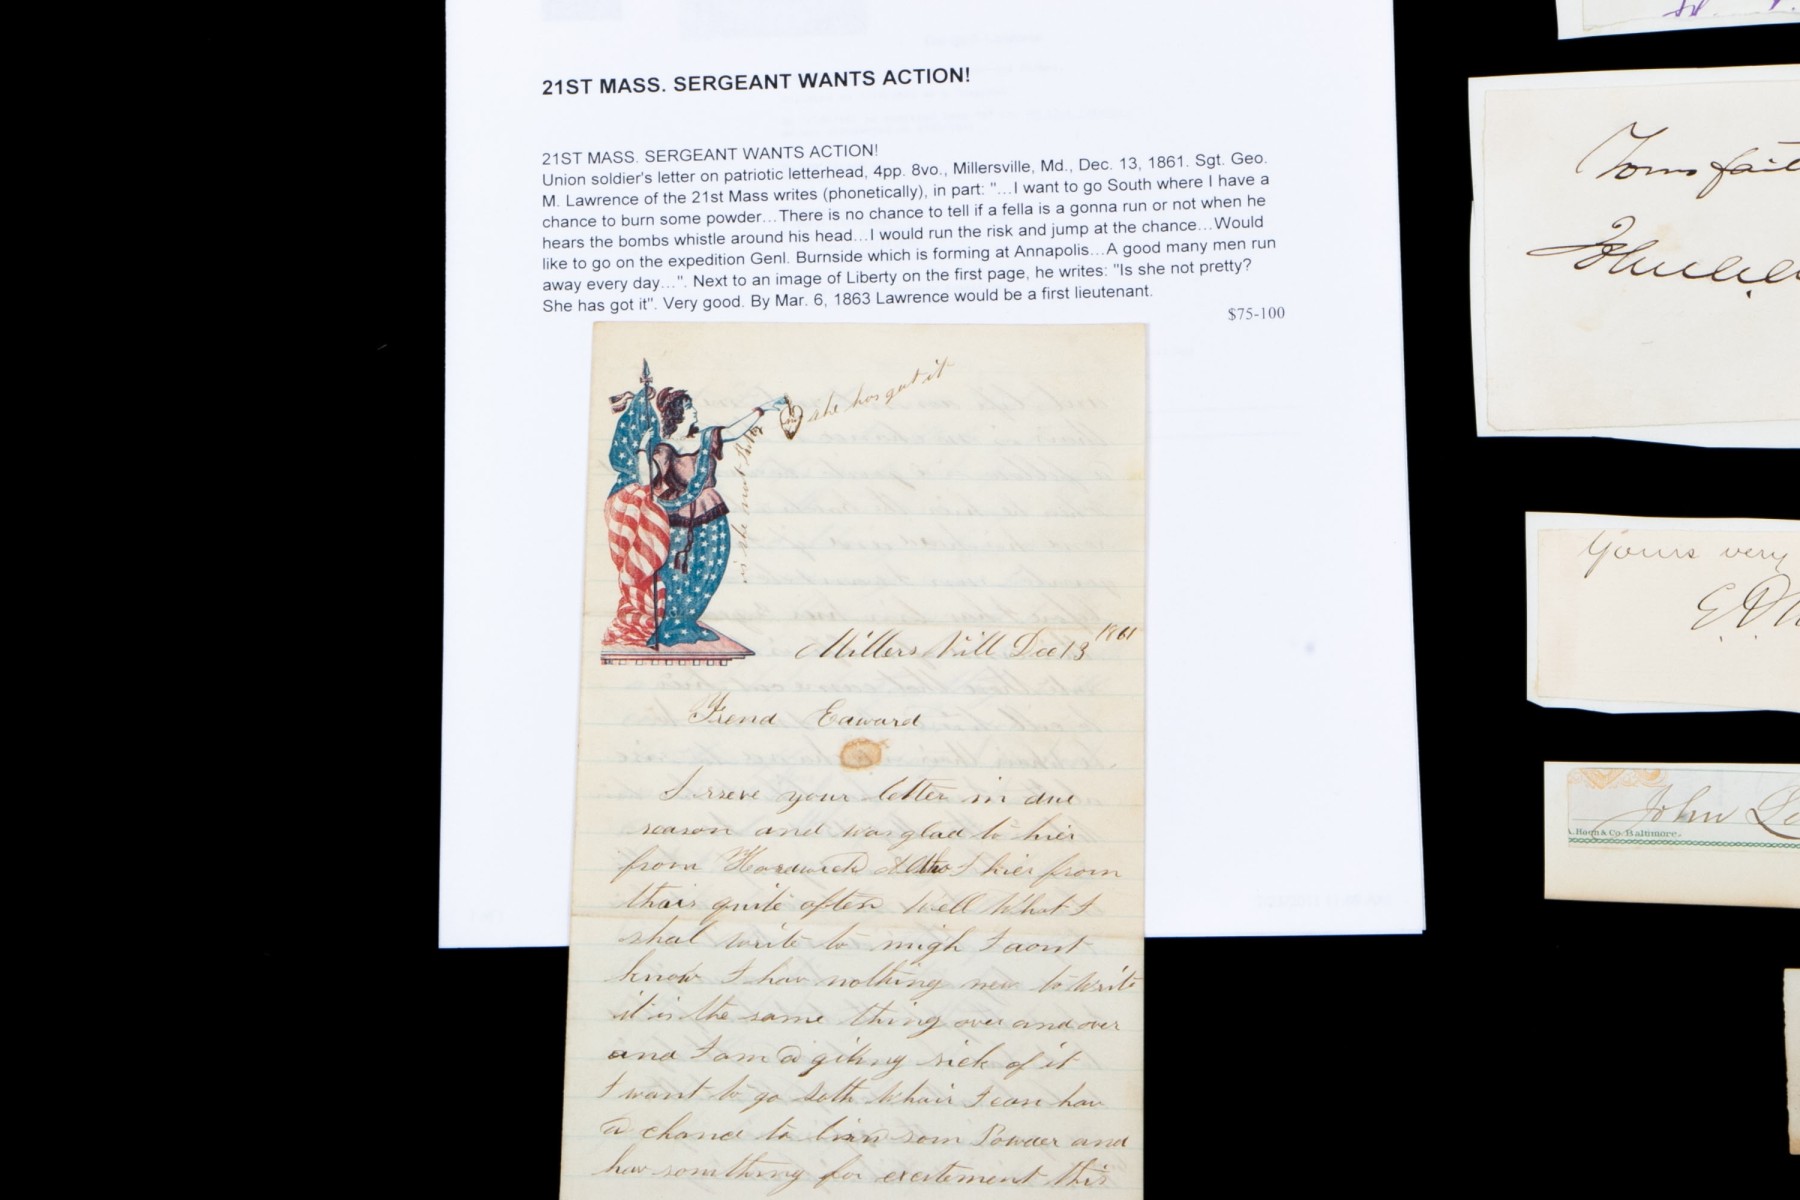 21ST MASS. SERGEANT WANTS ACTION!
21ST MASS. SERGEANT WANTS ACTION!
Union soldier's letter on patriotic letterhead, 4pp. 8vo., Millersville, Md., Dec. 13, 1861. Sgt. Geo.
M. Lawrence of the 21st Mass writes (phonetically), in part: "...I want to go South where I have a
chance to burn some powder...There is no chance to tell if a fella is a gonna run or not when he
hears the bombs whistle around his head...I would run the risk and jump at the chance...Would
like to go on the expedition Genl. Burnside which is forming at Annapolis...A good many men run
away every day...". Next to an image of Liberty on the first page, he writes: "Is she not pretty?
She has got it". Very good. By Mar. 6, 1863 Lawrence would be a first lieutenant.
$75-100
she has got it
is she not
Millers Vill Dec 13 1861
Frend Edward
I rseve your letter in due
season and was glad to hier
from Hardwick Altho I hier from
thair quite often Well What I
shal write to nigh I dont
know I hav nothing new to write
it is the same thing over and over
and I am a giting sick of it
I want to go soth whair I can hav
a chance to birn som Powder and
hav somthing for excitement this
Yours very
E. D.
John
A. Hoen & Co. Baltimore.